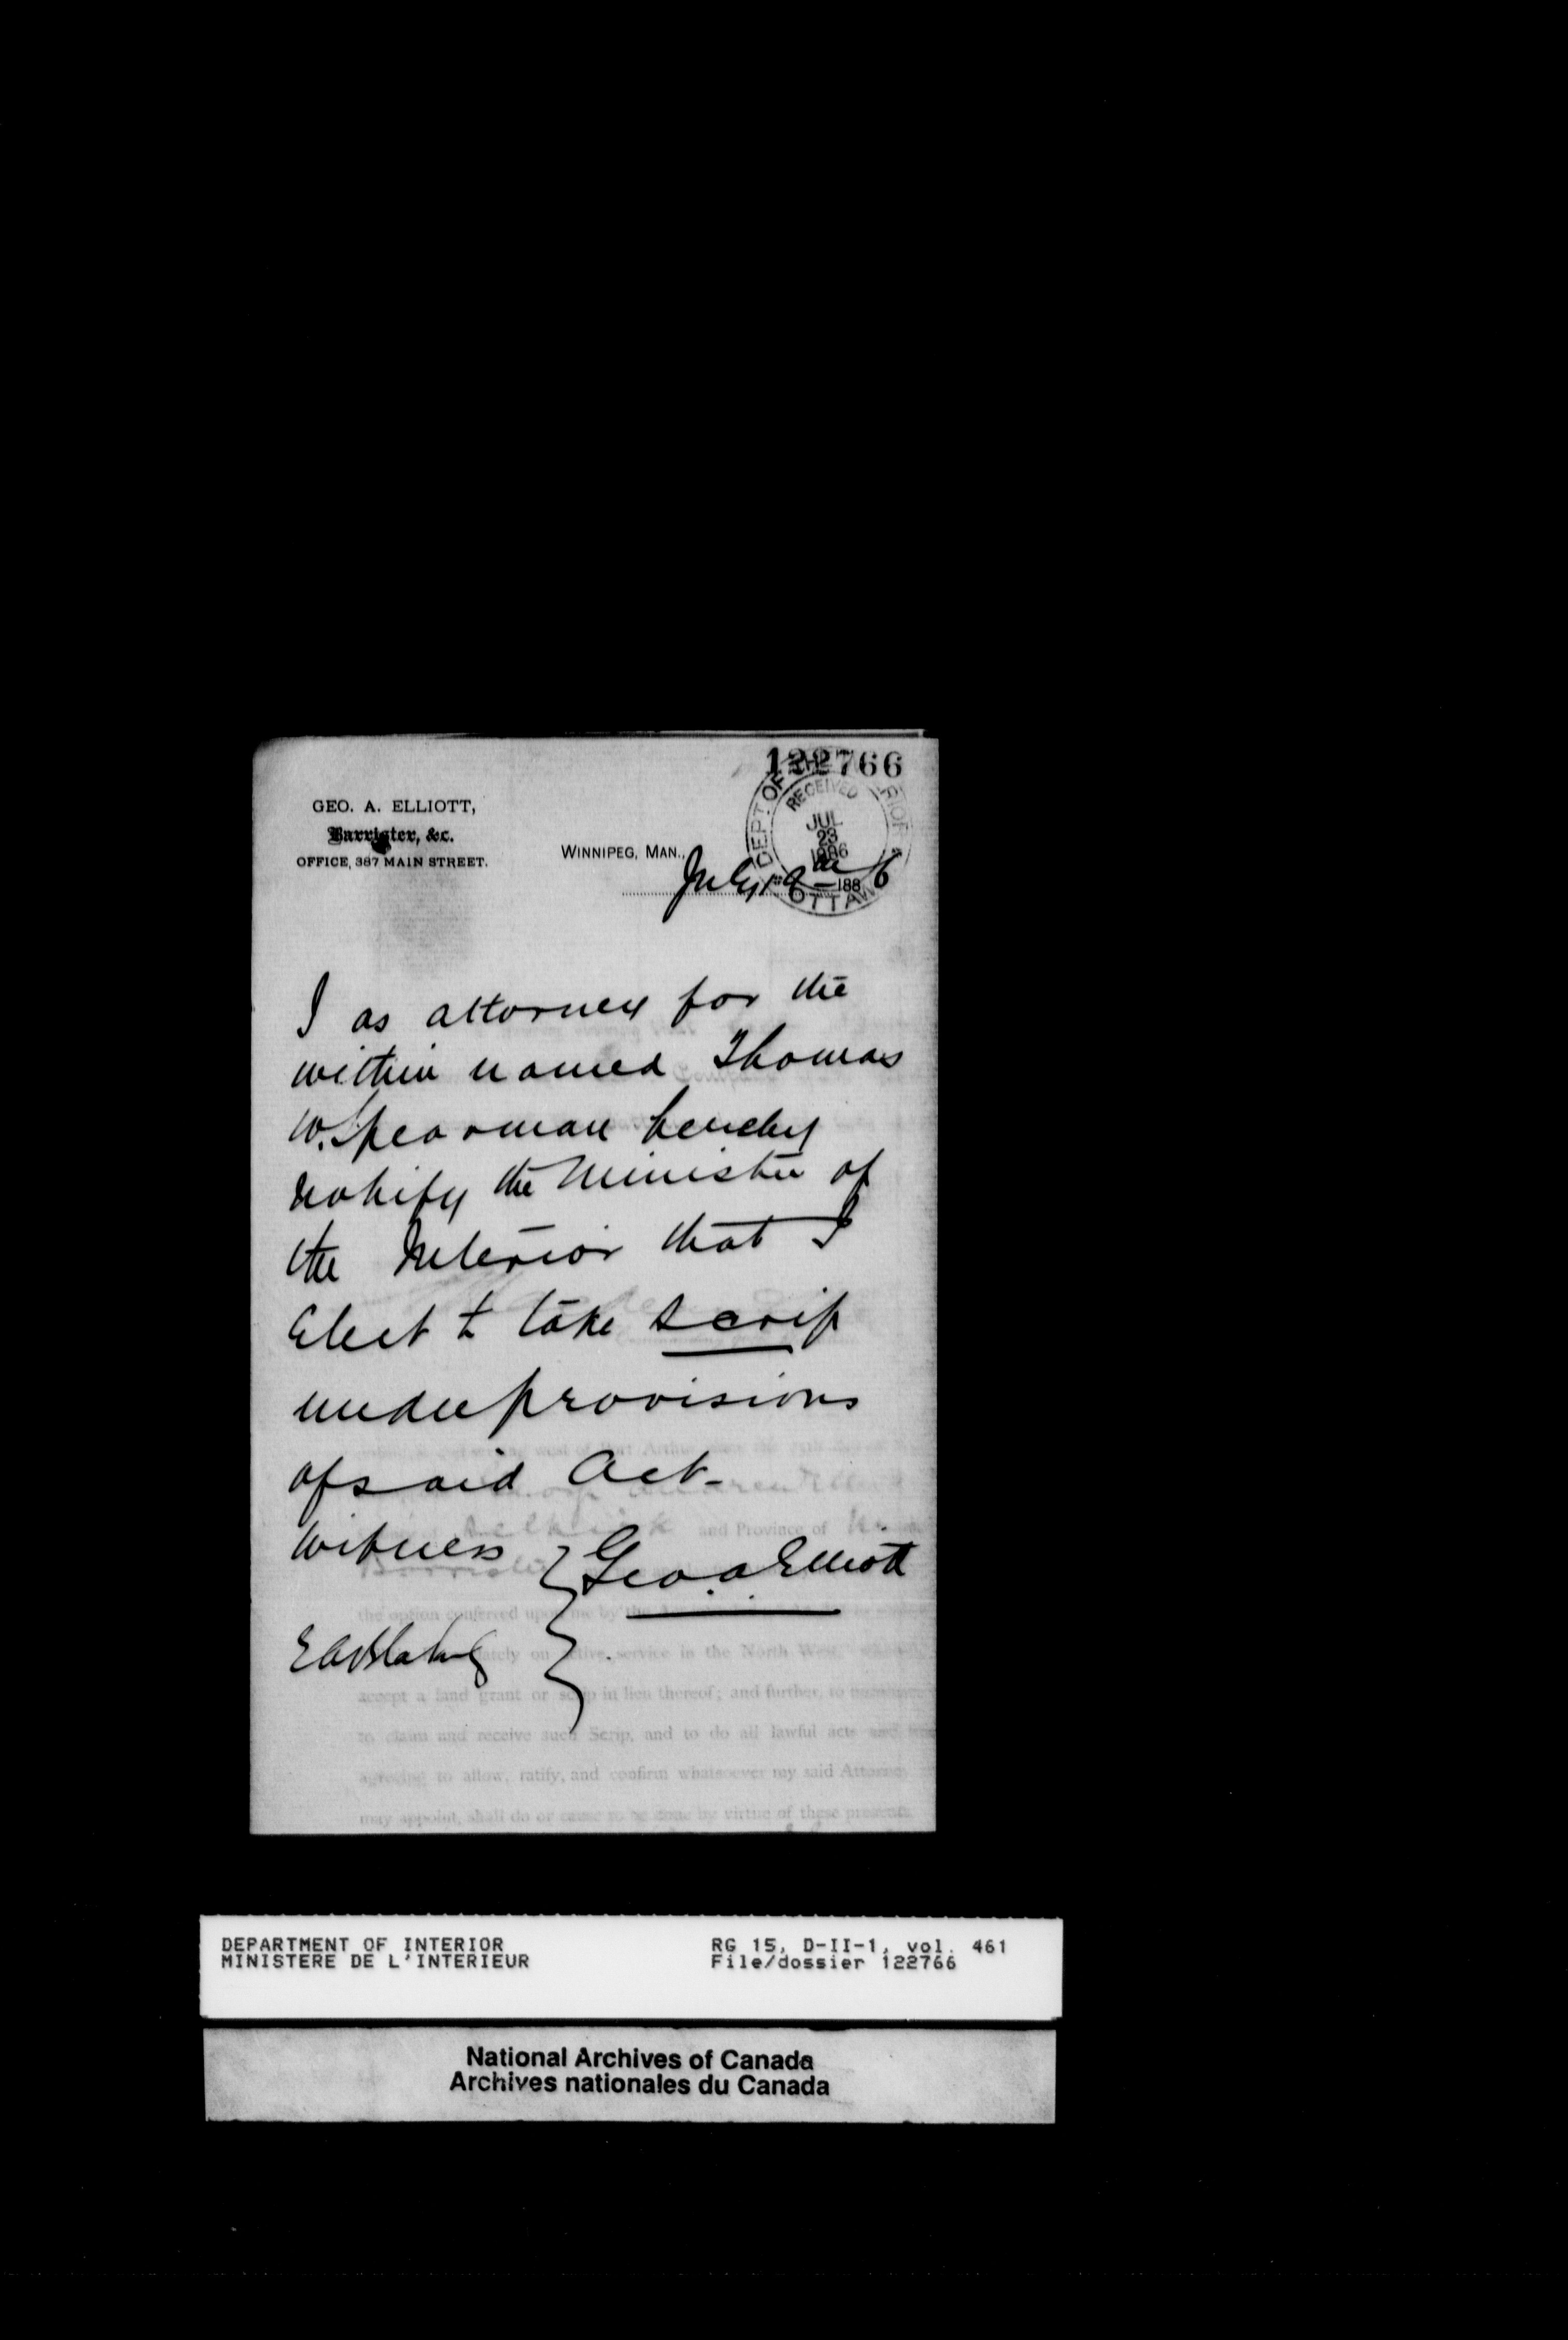 122766
DEPT. OF THE INTERIOR
RECEIVED
JUL
23
1886
OTTAWA
GEO. A. ELLIOTT,
Barrister, &c.
OFFICE, 387 MAIN STREET.
WINNIPEG, MAN.,
July 19th 1886
I as attorney for the
within named Thomas
W. Spearman hereby
notify the Minister of
the Interior that I
Elect to take scrip
under provisions
of said Act-
Witness } Geo. A. Elliott
and Province of
the option conferred upon me by the
lately on active service in the North West
accept a land grant or scrip in lieu thereof; and further, to
to claim and receive such Scrip, and to do all lawful acts and
agreeing to allow, ratify, and confirm whatsoever my said Attorney
may appoint, shall do or cause to be done by virtue of these presents.
DEPARTMENT OF INTERIOR
MINISTERE DE L'INTERIEUR
RG 15, D-II-1, vol. 461
File/dossier 122766
National Archives of Canada
Archives nationales du Canada